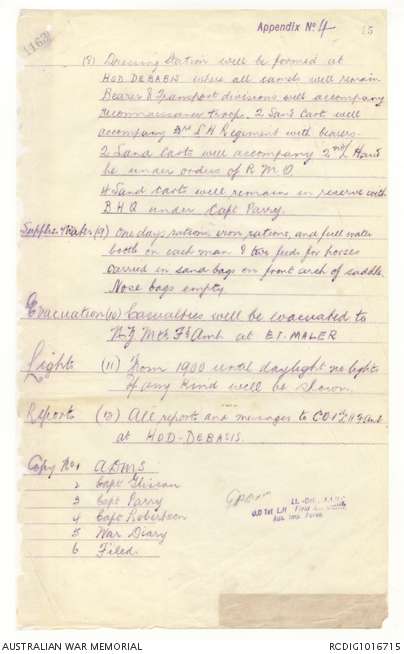 Appendix No 4 15
1162
(8) Dressing Station will be formed at
HOD DEBABIS where all camels will remain
Bearer & Transport divisions will accompany
reconnaissance troops. 2 Sand Carts will
accompany 3rd L H Regiment with bearers
2 Sand Carts will accompany 2nd L H and
be under orders of R M O
4 Sand Carts will remain in reserve with
B H Q under Capt Parry.
Supplies & Water (9) One days rations iron rations, and full water
bottle on each man & two feeds for horses
carried in sand bags on front arch of saddle
Nose bags empty.
Evacuation (10) Casualties will be evacuated to
N Z Mtd Fd Amb at ET. MALER
Lights (11) From 1900 until daylight no lights
of any kind will be shown.
Reports (12) All reports and messages to CO 1st L H Fd Amb
at HOD-DEBABIS.
Copy No 1 ADMS
2 Capt
3 Capt Parry
4 Capt Robertson
5 War Diary
6 Filed.
Lt.-Col.
O.C 1st L.H. Field Ambulance
Aus. Imp. Force
AUSTRALIAN WAR MEMORIAL
RCDIG1016715